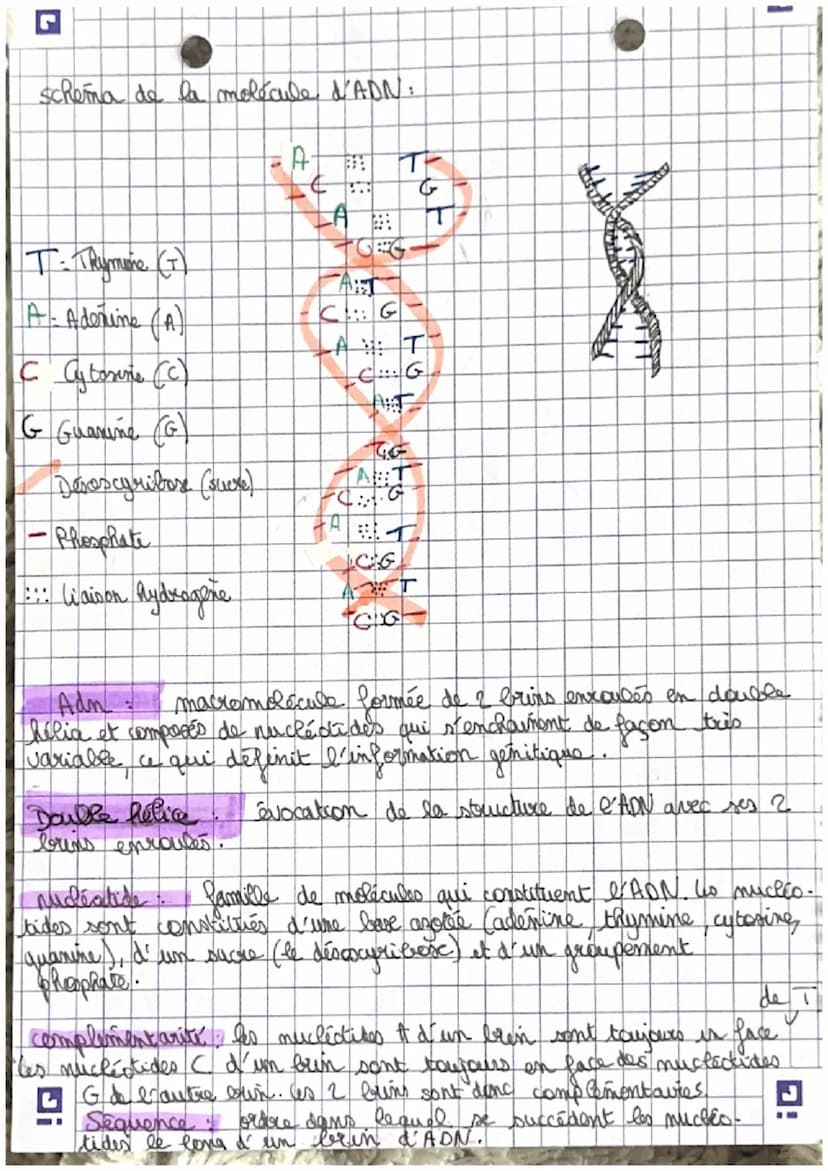 schéma de la molécule d'ADN :
A T
C G
A T
C G
A T
C G
A T
C G
A T
C G
A T
C G
A T
C G
A T
C G
T = Thymine (T)
A = Adénine (A)
C Cytosine (C)
G Guanine (G)
Désoxyribose (sucre)
Phosphate
Liaison hydrogène
Adn : macromolécule formée de 2 brins enroulés en double
hélia et composés de nucléotides qui s'enchaînent de façon très
variable, ce qui définit l'information génitique.
Double hélice : évocation de la structure de l'ADN avec ses 2
brins enroulés.
nucléotide : famille de molécules qui constituent l'ADN. Les nucléo-
tides sont constitués d'une base azotée (adénine, thymine, cytosine,
guanine), d'un sucre (le désoxyribose) et d'un groupement
phosphate.
de T
complémentarité : les nucléotides A d'un brin sont toujours en face
les nucléotides C d'un brin sont toujours en face des nucléotides
G de l'autre brin. Les 2 brins sont donc complémentaires.
Séquence : ordre dans lequel se succèdent les nucléo-
tides le long d'un brin d'ADN.